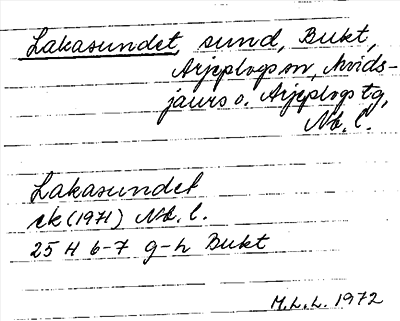 Lakasundet, sund, Bukt,
Arjeplogs sn, Arvids-
jaurs o. Arjeplogs tg,
Nb. l.
Lakasundet
ek (1971) Nb. l.
25 H 6-7 g-h Bukt
M.L.L. 1972